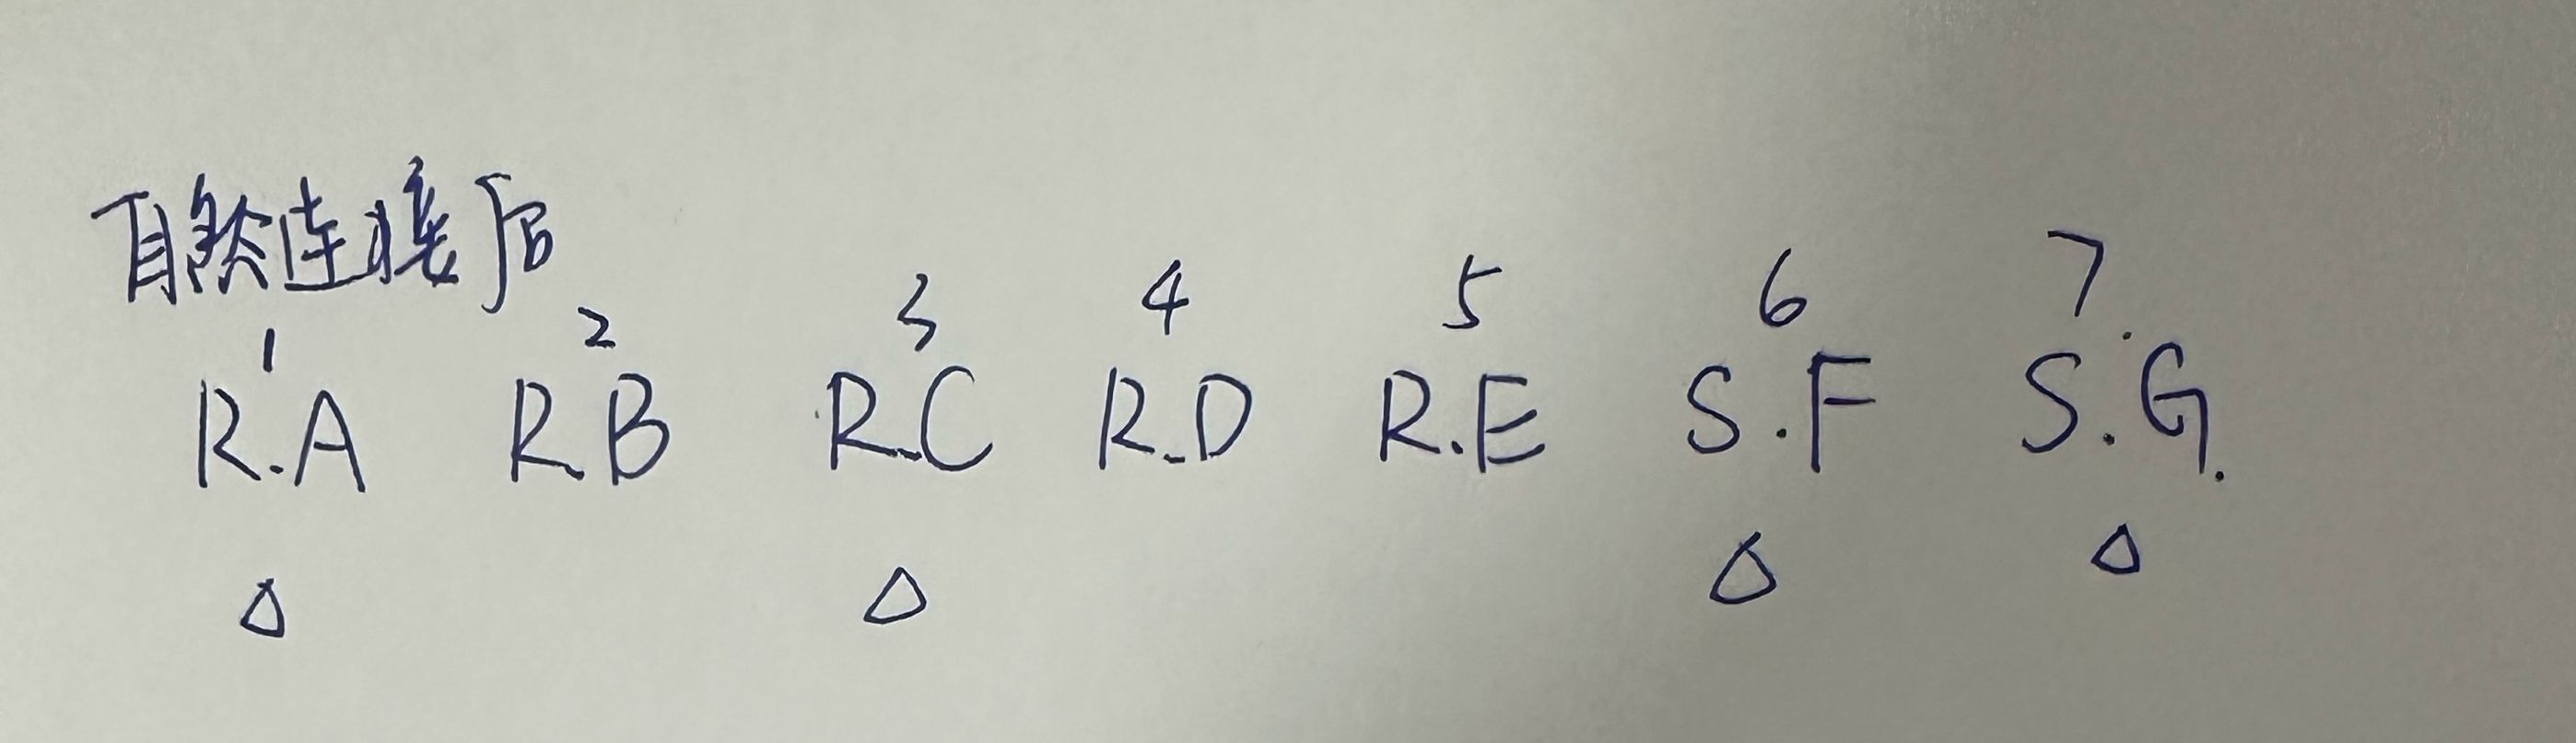 自然连接后
1 2 3 4 5 6 7
R.A R.B R.C R.D R.E S.F S.G.